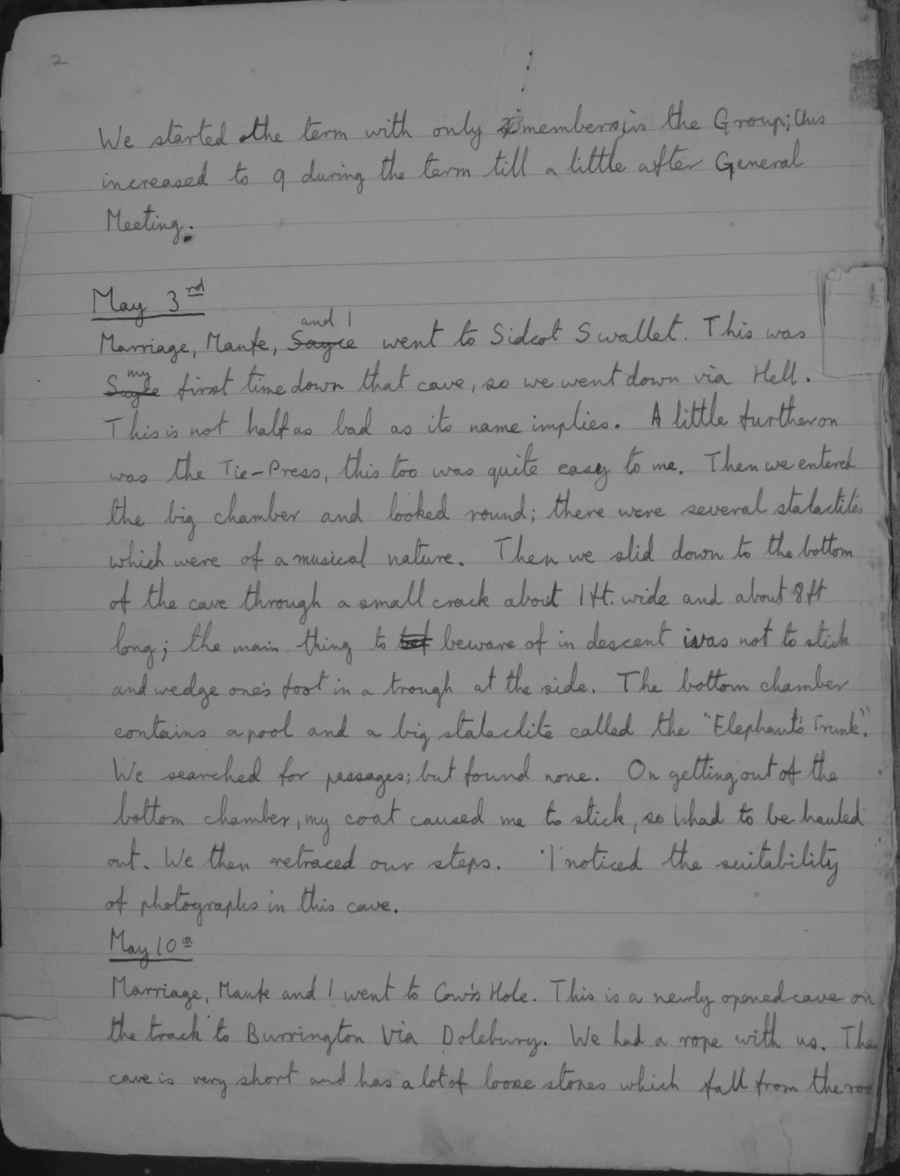 2
We started the term with only members in the Group; this
increased to 9 during the term till a little after General
Meeting.
May 3rd
and I
Marriage, Manke, Sayce went to Sidcot Swallet. This was
my
first time down that cave, so we went down via Hell.
This is not half as bad as its name implies. A little further on
was the Tie-Press, this too was quite easy to me. Then we entered
the big chamber and looked round; there were several stalactites
which were of a musical nature. Then we slid down to the bottom
of the cave through a small crack about 1 ft. wide and about 8 ft
long; the main thing to beware of in descent was not to stick
and wedge one's foot in a trough at the side. The bottom chamber
contains a pool and a big stalactite called the "Elephant's Trunk".
We searched for passages; but found none. On getting out of the
bottom chamber, my coat caused me to stick, so I had to be hauled
out. We then retraced our steps. I noticed the suitability
of photographs in this cave.
May 10th
Marriage, Manke and I went to Cow's Hole. This is a newly opened cave on
the track to Burrington Via Dolebury. We had a rope with us. The
cave is very short and has a lot of loose stones which fall from the roo